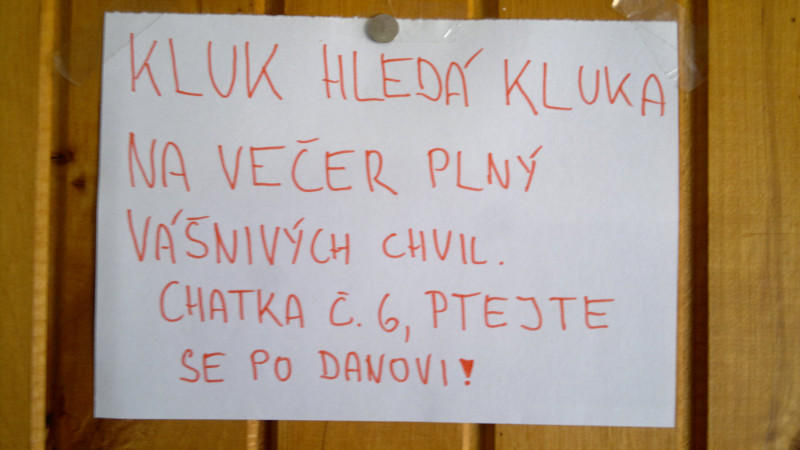 KLUK HLEDÁ KLUKA
NA VEČER PLNÝ
VÁŠNIVÝCH CHVIL.
CHATKA Č. 6, PTEJTE
SE PO DANOVI!